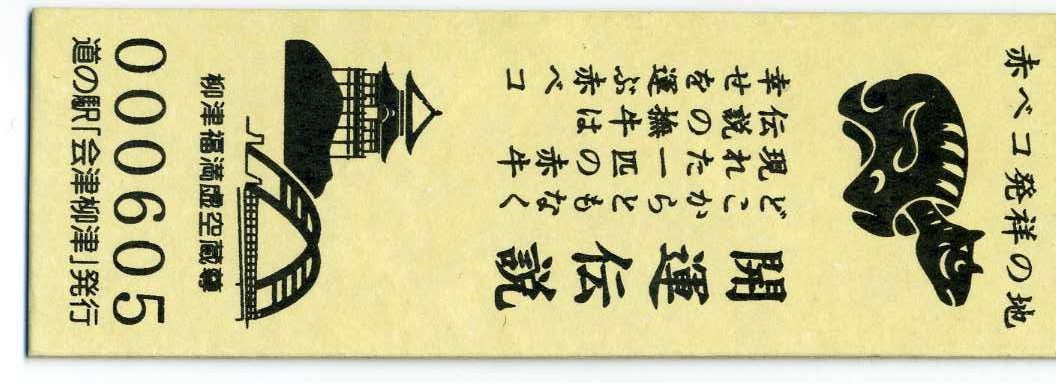 赤べコ発祥の地
開運伝説
どこからともなく
現れた一匹の赤牛
伝説の撫牛は
幸せを運ぶ赤べコ
柳津福満虚空蔵尊
000605
道の駅「会津柳津」発行